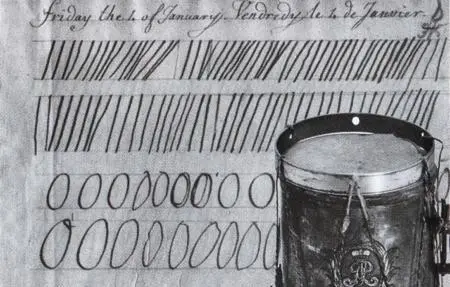 Friday the 4 of January. Vendredy le 4 de Janvier.